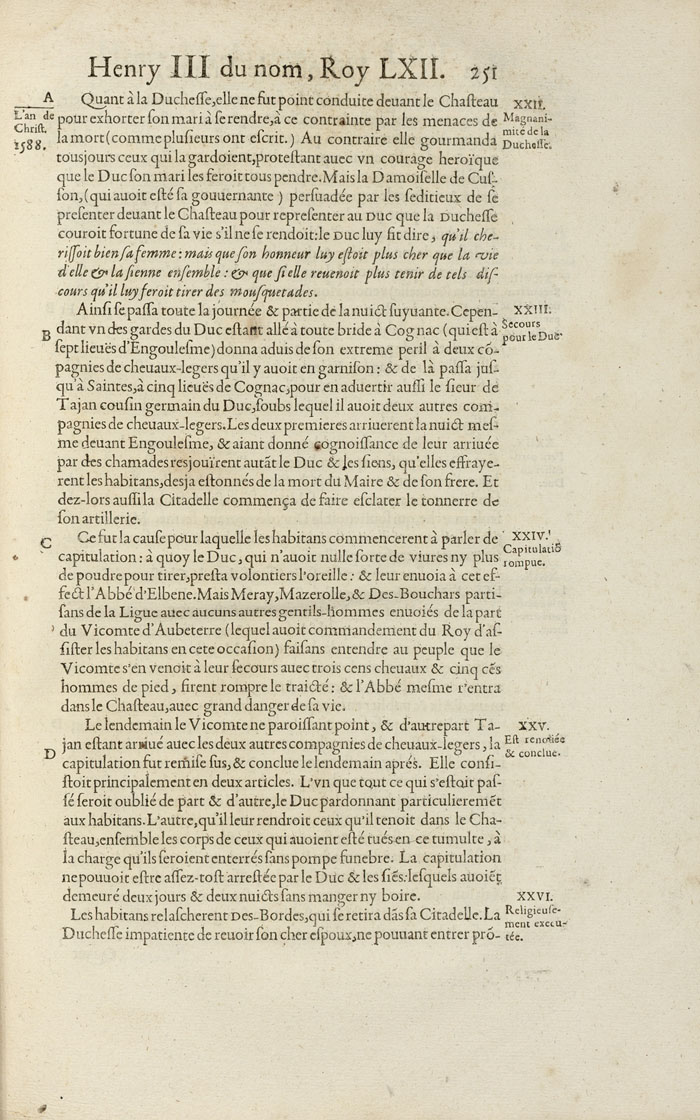 Henry III du nom, Roy LXII. 251
A
L'an de
Christ.
1588.
Quant à la Duchesse, elle ne fut point conduite deuant le Chasteau
pour exhorter son mari à se rendre, à ce contrainte par les menaces de
la mort (comme plusieurs ont escrit.) Au contraire elle gourmanda
tousjours ceux qui la gardoient, protestant auec vn courage heroïque
que le Duc son mari les feroit tous pendre. Mais la Damoiselle de Cus-
son, (qui auoit esté sa gouuernante ) persuadée par les seditieux de se
presenter deuant le Chasteau pour representer au Duc que la Duchesse
couroit fortune de sa vie s'il ne se rendoit: le Duc luy fit dire, qu'il che-
rissoit bien sa femme: mais que son honneur luy estoit plus cher que la vie
d'elle & la sienne ensemble: & que si elle reuenoit plus tenir de tels dis-
cours qu'il luy feroit tirer des mousquetades.
XXII.
Magnani-
mité de la
Duchesse.
Ainsi se passa toute la journée & partie de la nuict suyuante. Cepen-
B
dant vn des gardes du Duc estant allé à toute bride à Cognac (qui est à
sept lieuës d'Engoulesme) donna aduis de son extreme peril à deux cō-
pagnies de cheuaux-legers qu'il y auoit en garnison: & de là passa jus-
qu'à Saintes, à cinq lieuës de Cognac, pour en aduertir aussi le sieur de
Tajan cousin germain du Duc, soubs lequel il auoit deux autres com-
pagnies de cheuaux-legers. Les deux premieres arriuerent la nuict mes-
me deuant Engoulesme, & aiant donné cognoissance de leur arriuée
par des chamades resjouïrent autāt le Duc & les siens, qu'elles effraye-
rent les habitans, desja estonnés de la mort du Maire & de son frere. Et
dez-lors aussi la Citadelle commença de faire esclater le tonnerre de
son artillerie.
XXIII.
Secours
pour le Duc
C
Ce fut la cause pour laquelle les habitans commencerent à parler de
capitulation: à quoy le Duc, qui n'auoit nulle sorte de viures ny plus
de poudre pour tirer, presta volontiers l'oreille: & leur enuoia à cet ef-
fect l'Abbé d'Elbene. Mais Meray, Mazerolle, & Des-Bouchars parti-
sans de la Ligue auec aucuns autres gentils-hommes enuoiés de la part
du Vicomte d'Aubeterre (lequel auoit commandement du Roy d'as-
sister les habitans en cete occasion) faisans entendre au peuple que le
Vicomte s'en venoit à leur secours auec trois cens cheuaux & cinq cēs
hommes de pied, firent rompre le traicté: & l'Abbé mesme r'entra
dans le Chasteau, auec grand danger de sa vie.
XXIV.
Capitulatiō
rompue.
Le lendemain le Vicomte ne paroissant point, & d'autre part Ta-
D
jan estant arriué auec les deux autres compagnies de cheuaux-legers, la
capitulation fut remise sus, & conclue le lendemain aprés. Elle consi-
stoit principalement en deux articles. L'vn que tout ce qui s'estoit pas-
sé seroit oublié de part & d'autre, le Duc pardonnant particulieremēt
aux habitans. L'autre, qu'il leur rendroit ceux qu'il tenoit dans le Cha-
steau, ensemble les corps de ceux qui auoient esté tués en ce tumulte, à
la charge qu'ils seroient enterrés sans pompe funebre. La capitulation
ne pouuoit estre assez-tost arrestée par le Duc & les siēs: lesquels auoiēt
demeuré deux jours & deux nuicts sans manger ny boire.
XXV.
Est renoüée
& conclue.
Les habitans relascherent Des-Bordes, qui se retira dās sa Citadelle. La
Duchesse impatiente de reuoir son cher espoux, ne pouuant entrer prō-
XXVI.
Religieuse-
ment execu-
tée.